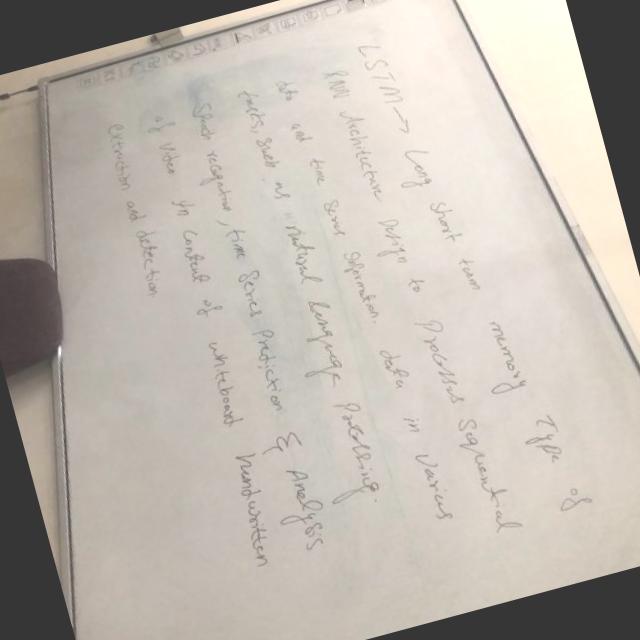 LSTM → Long short team memory Type of
RNN Architecture Design to Process Sequential
data and time series information. data in Varies
tasks, such as natural language Processing.
Speech recognition, time Series Prediction & Analysis
of Video in Context of whiteboard handwritten
extraction and detection